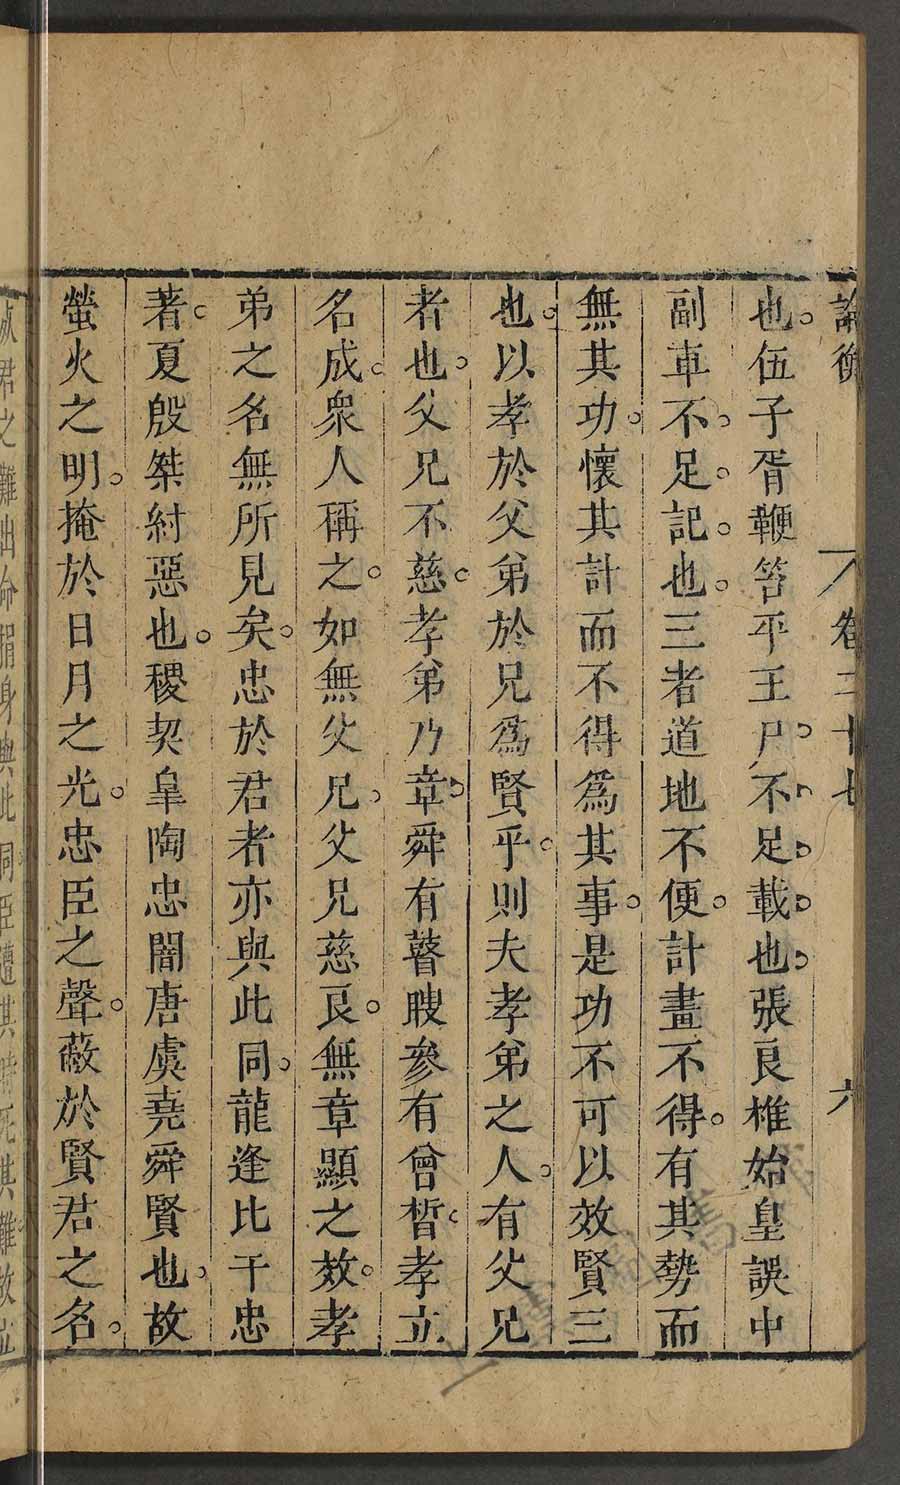 論衡 卷二十七 六
也。伍子胥鞭笞平王尸。不。足。載。也。張良椎始皇誤中
副車不。足。記。也。三者道地不便。計畫不得。有其勢而
無其功。懷其計而不得爲其事。是功不可以效賢三
也。以孝於父弟於兄爲賢乎。則夫孝弟之人。有父兄
者也。父兄不慈。孝弟乃章。舜有瞽瞍參有曾晳。孝立
名成。衆人稱之。如無父兄。父兄慈良。無章顯之效。孝
弟之名無所見矣。忠於君者亦與此同。龍逢比干忠
著。夏殷桀紂惡也。稷契皐陶忠闇唐虞堯舜賢也。故
螢火之明。掩於日月之光。忠臣之聲。蔽於賢君之名。
君之難出命捐身與此同臣遭其時死其難故立